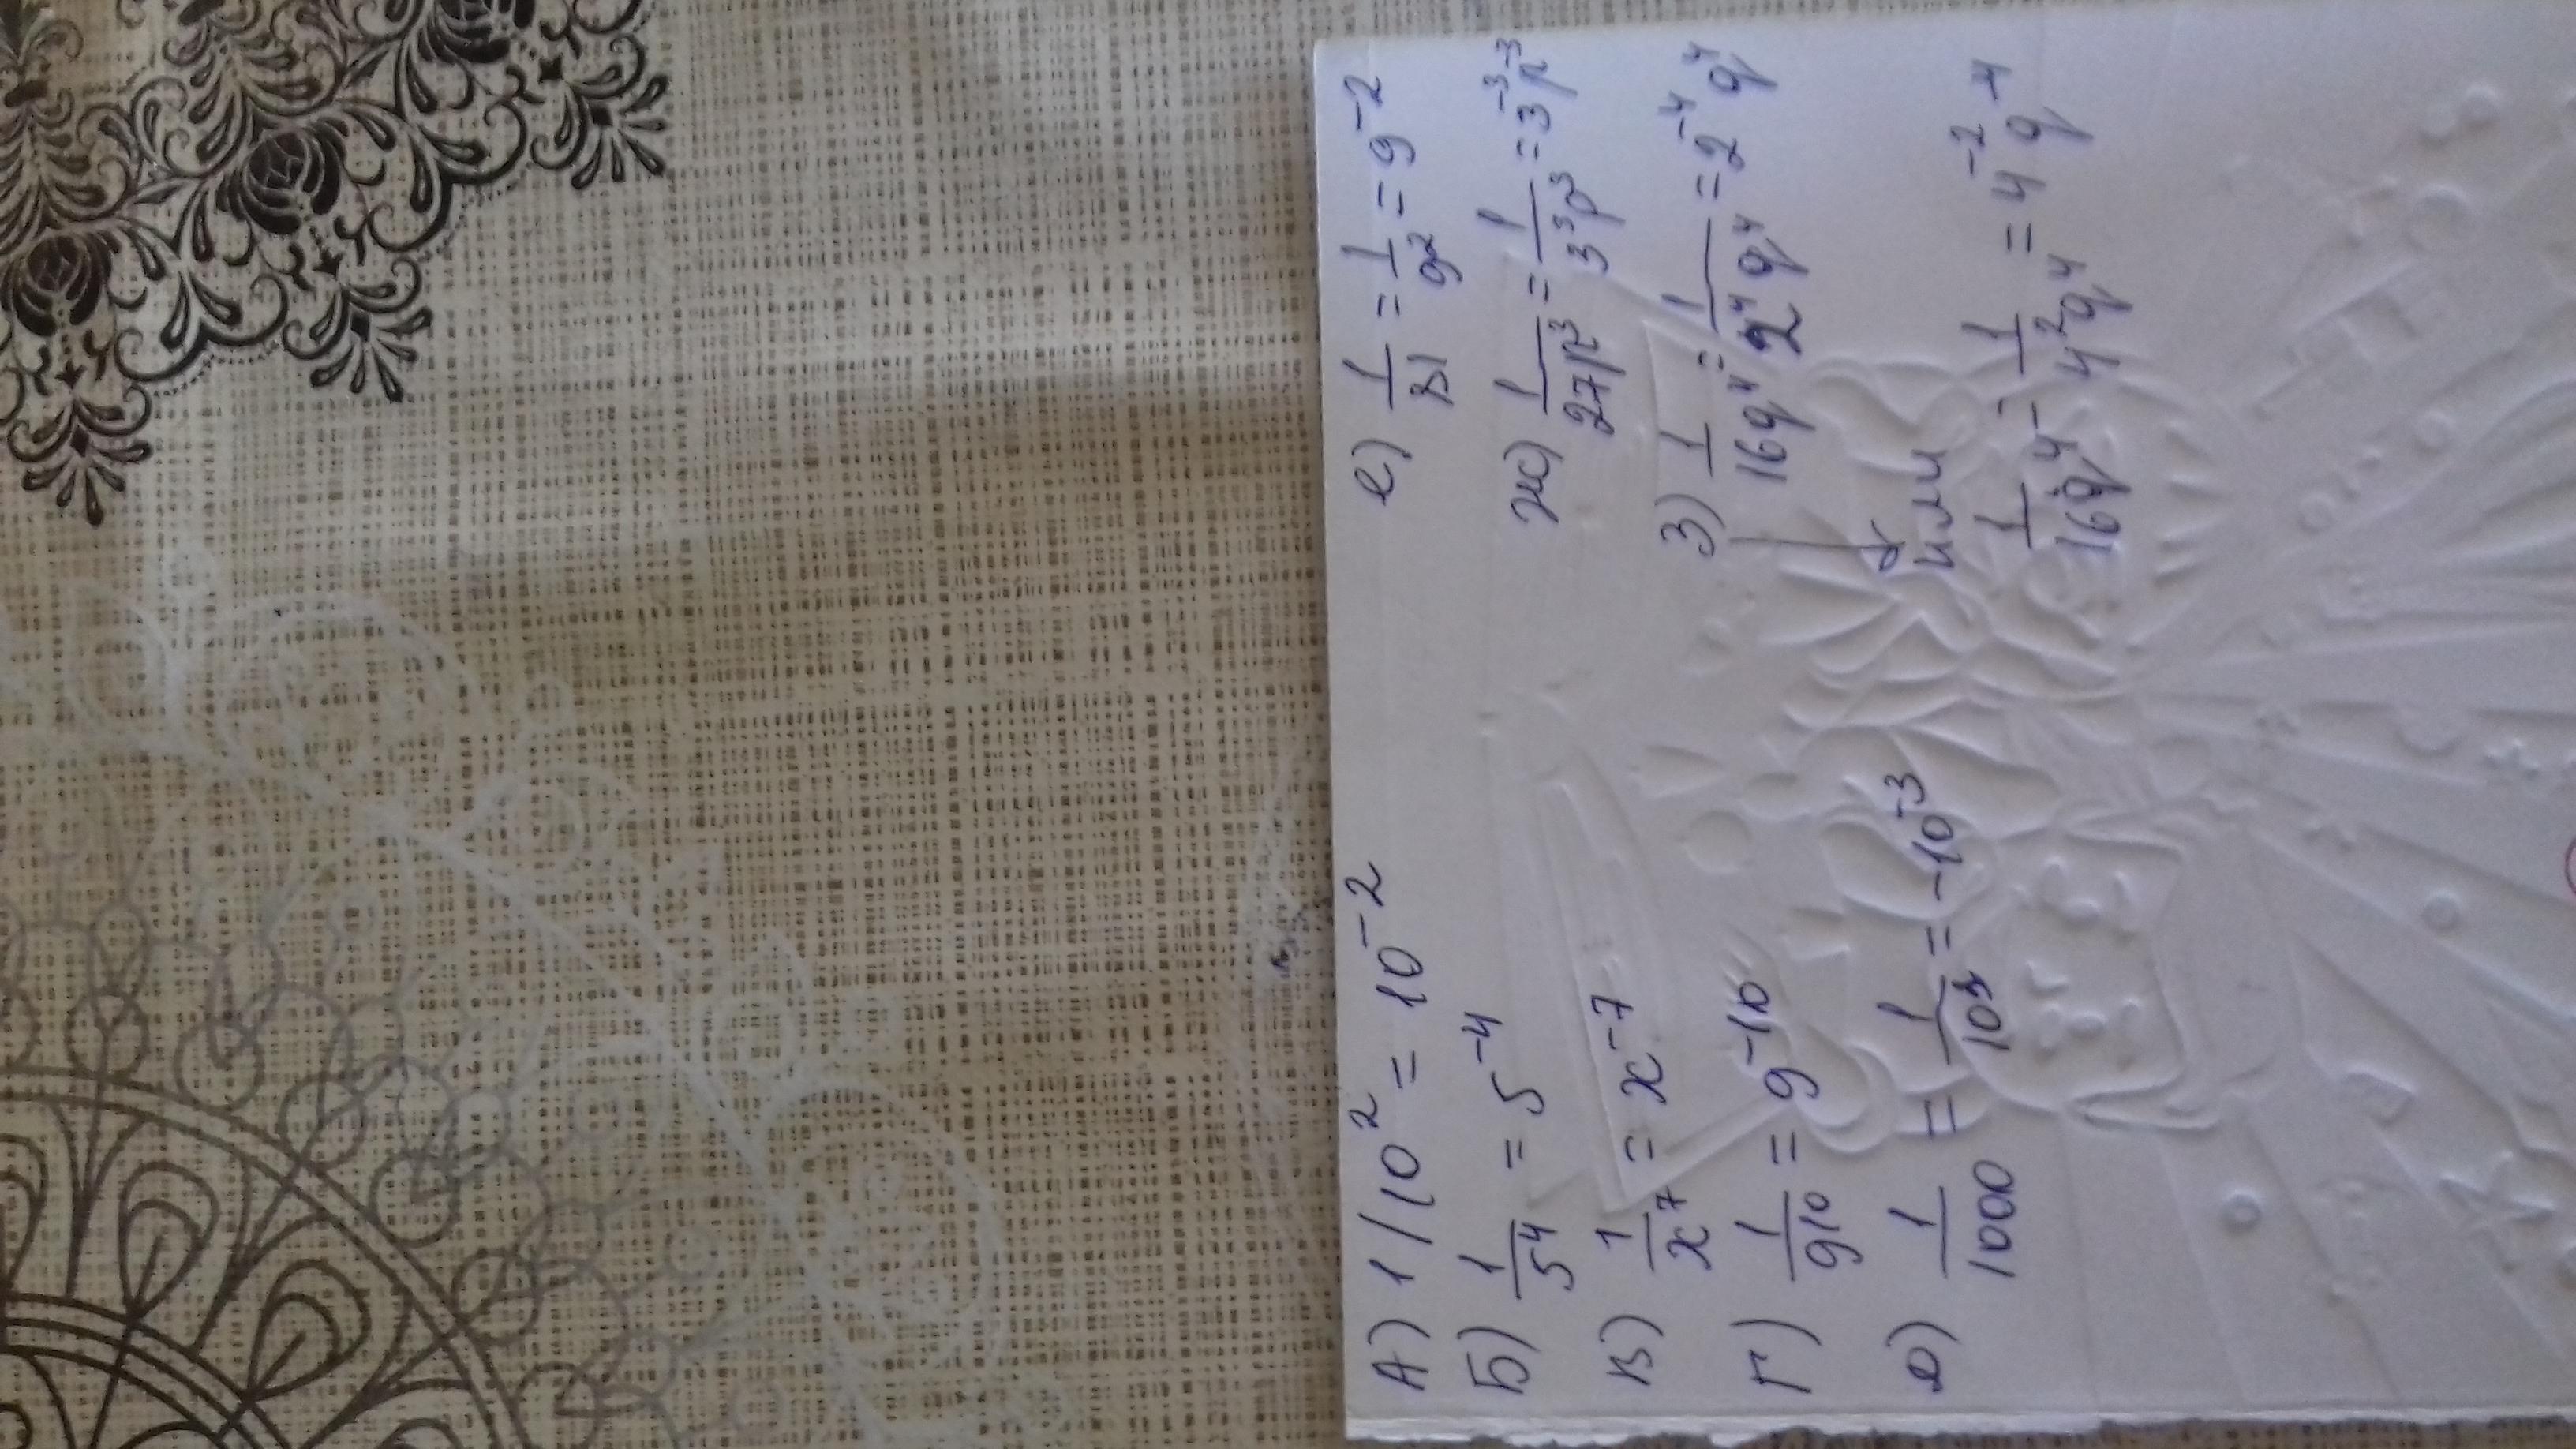 А) 1/10² = 10⁻²
Б) 1/5⁴ = 5⁻⁴
В) 1/x⁷ = x⁻⁷
Г) 1/9¹⁰ = 9⁻¹⁰
Д) 1/1000 = 1/10³ = -10⁻³
е) 1/81 = 1/9² = 9⁻²
ж) 1/27p³ = 1/3³p³ = 3⁻³p⁻³
З) 1/16q⁴ = 1/2⁴q⁴ = 2⁻⁴q⁴
или
1/16q⁴ - 1/4²q⁴ = 4⁻²q⁻⁴